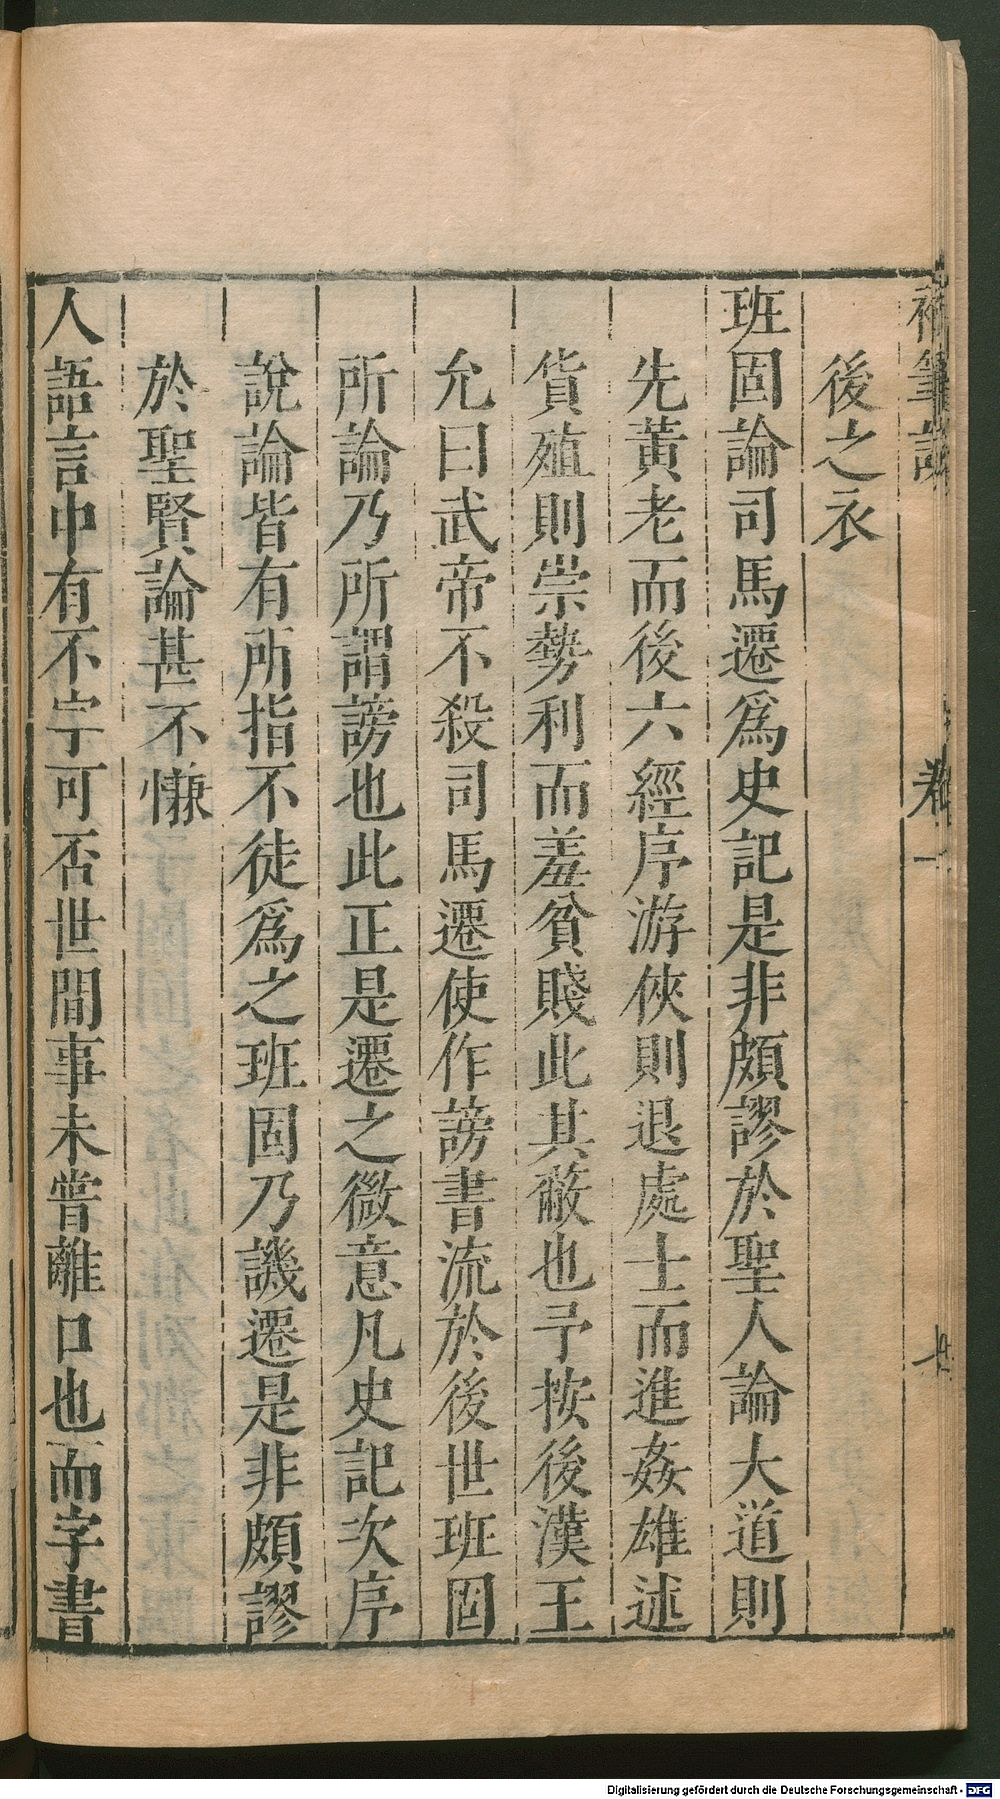 補筆談 卷一
後之衣
班固論司馬遷爲史記是非頗謬於聖人論大道則
先黃老而後六經序游俠則退處士而進姦雄述
貨殖則崇勢利而羞貧賤此其敝也予按後漢王
允曰武帝不殺司馬遷使作謗書流於後世班固
所論乃所謂謗也此正是遷之微意凡史記次序
說論皆有所指不徒爲之班固乃譏遷是非頗謬
於聖賢論甚不慊
人語言中有不字可否世間事未嘗離口也而字書
Digitalisierung gefördert durch die Deutsche Forschungsgemeinschaft - DFG